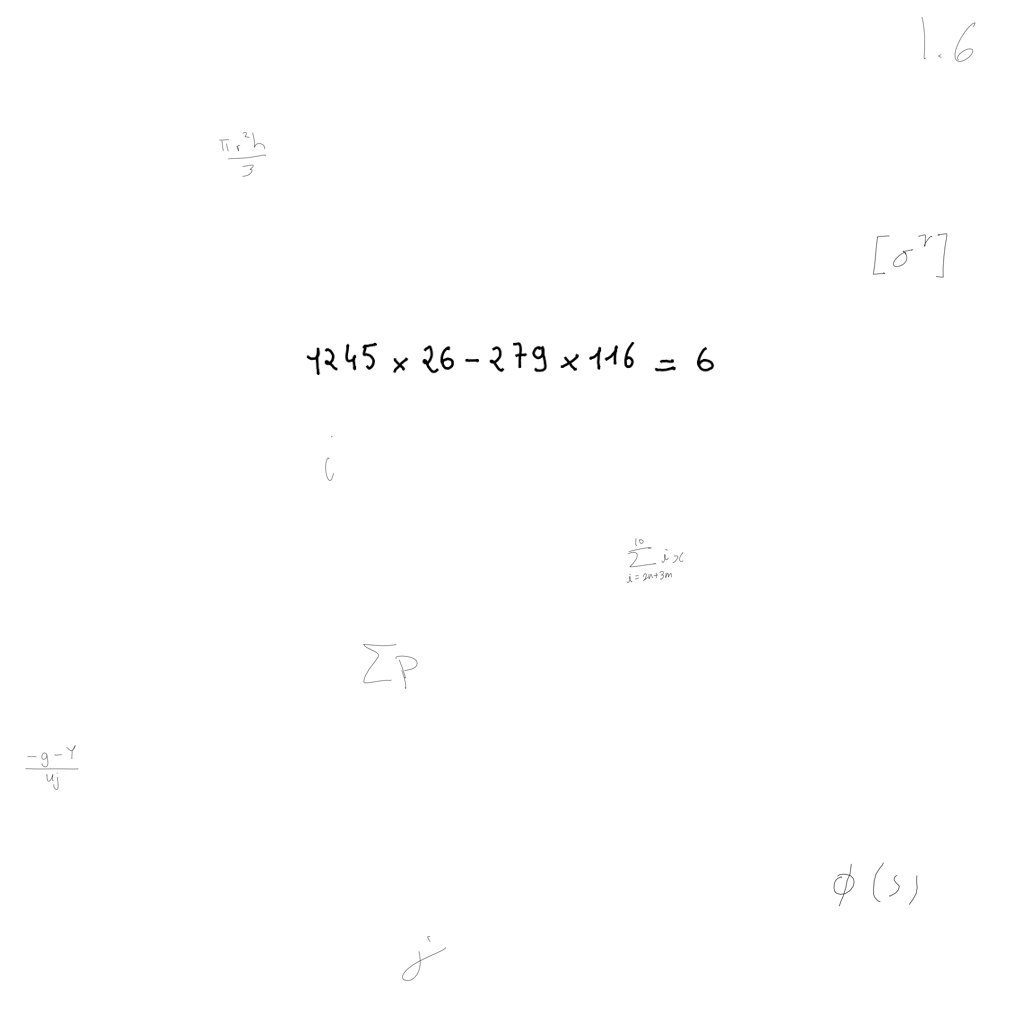 1.6
πr²h/3
[σ^r]
1245 × 26 − 279 × 116 = 6
i
∑_{i=2n+3m}^{10} ix
∑P
(-g-Y)/(uj)
ϕ(s)
j